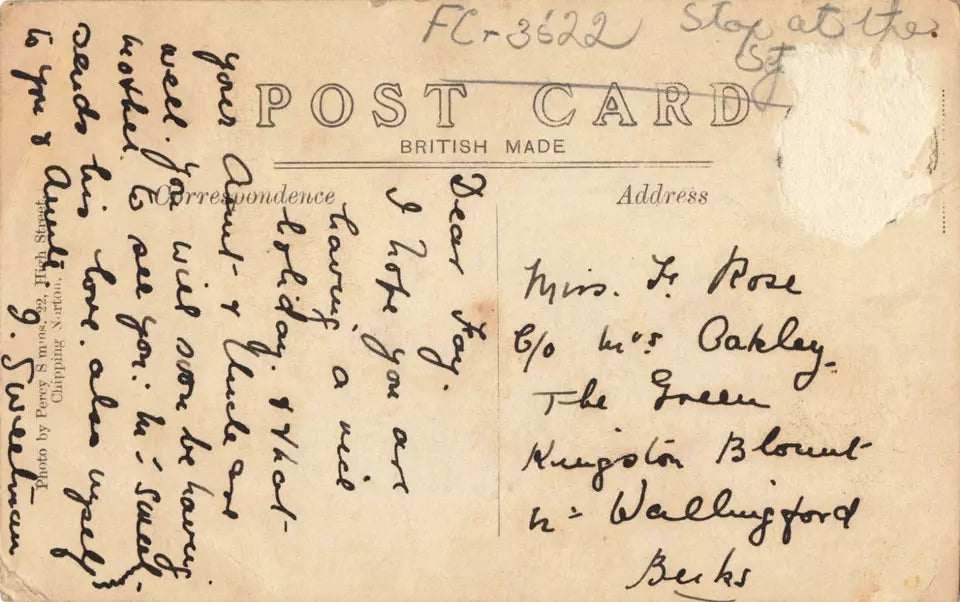 FC-3522 Stop at the
POST CARD
BRITISH MADE
Correspondence
Address
Dear Fay.
I hope you are
having a nice
holiday. & that
your Aunt & Uncle are
well. you will soon be having
mother to see you. Mr Sweet-
sends his love. also myself
to you & Aunt.
G. Sweetman
Miss. F. Rose
C/o Mrs Oakley.
The Green
Kingston Blount
Nr Wallingford
Berks
Photo by Percy Simms, 22, High Street,
Chipping Norton.